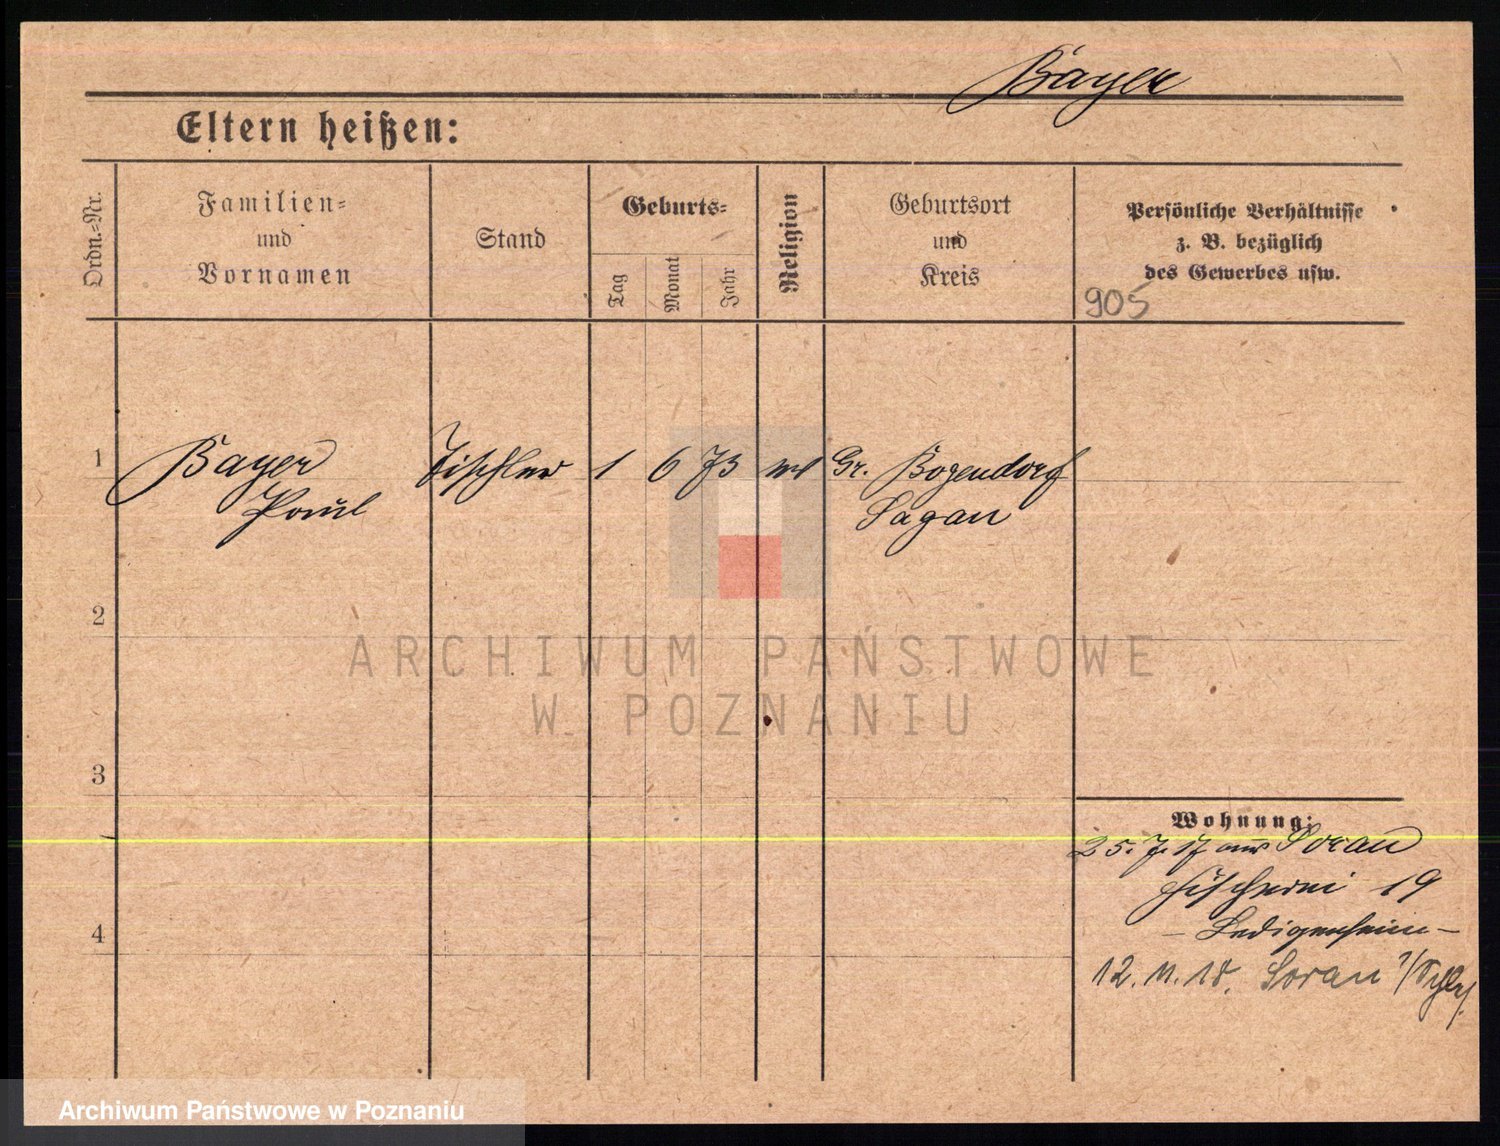 Bayer
Eltern heißen:
Ordn.-Nr.
Familien-
und
Vornamen
Stand
Geburts-
Tag
Monat
Jahr
Religion
Geburtsort
und
Kreis
Persönliche Verhältnisse
z. B. bezüglich
des Gewerbes usw.
905
1 Bayer Tischler 1 6 73 Gr. Bogendorf
Paul Sagan
2
ARCHIWUM PAŃSTWOWE
W POZNANIU
3
Wohnung:
25. 7. 17 aus Sorau
Fischerei 19
- Ledigenheim -
4
12. 11. 18. Sorau
Archiwum Państwowe w Poznaniu